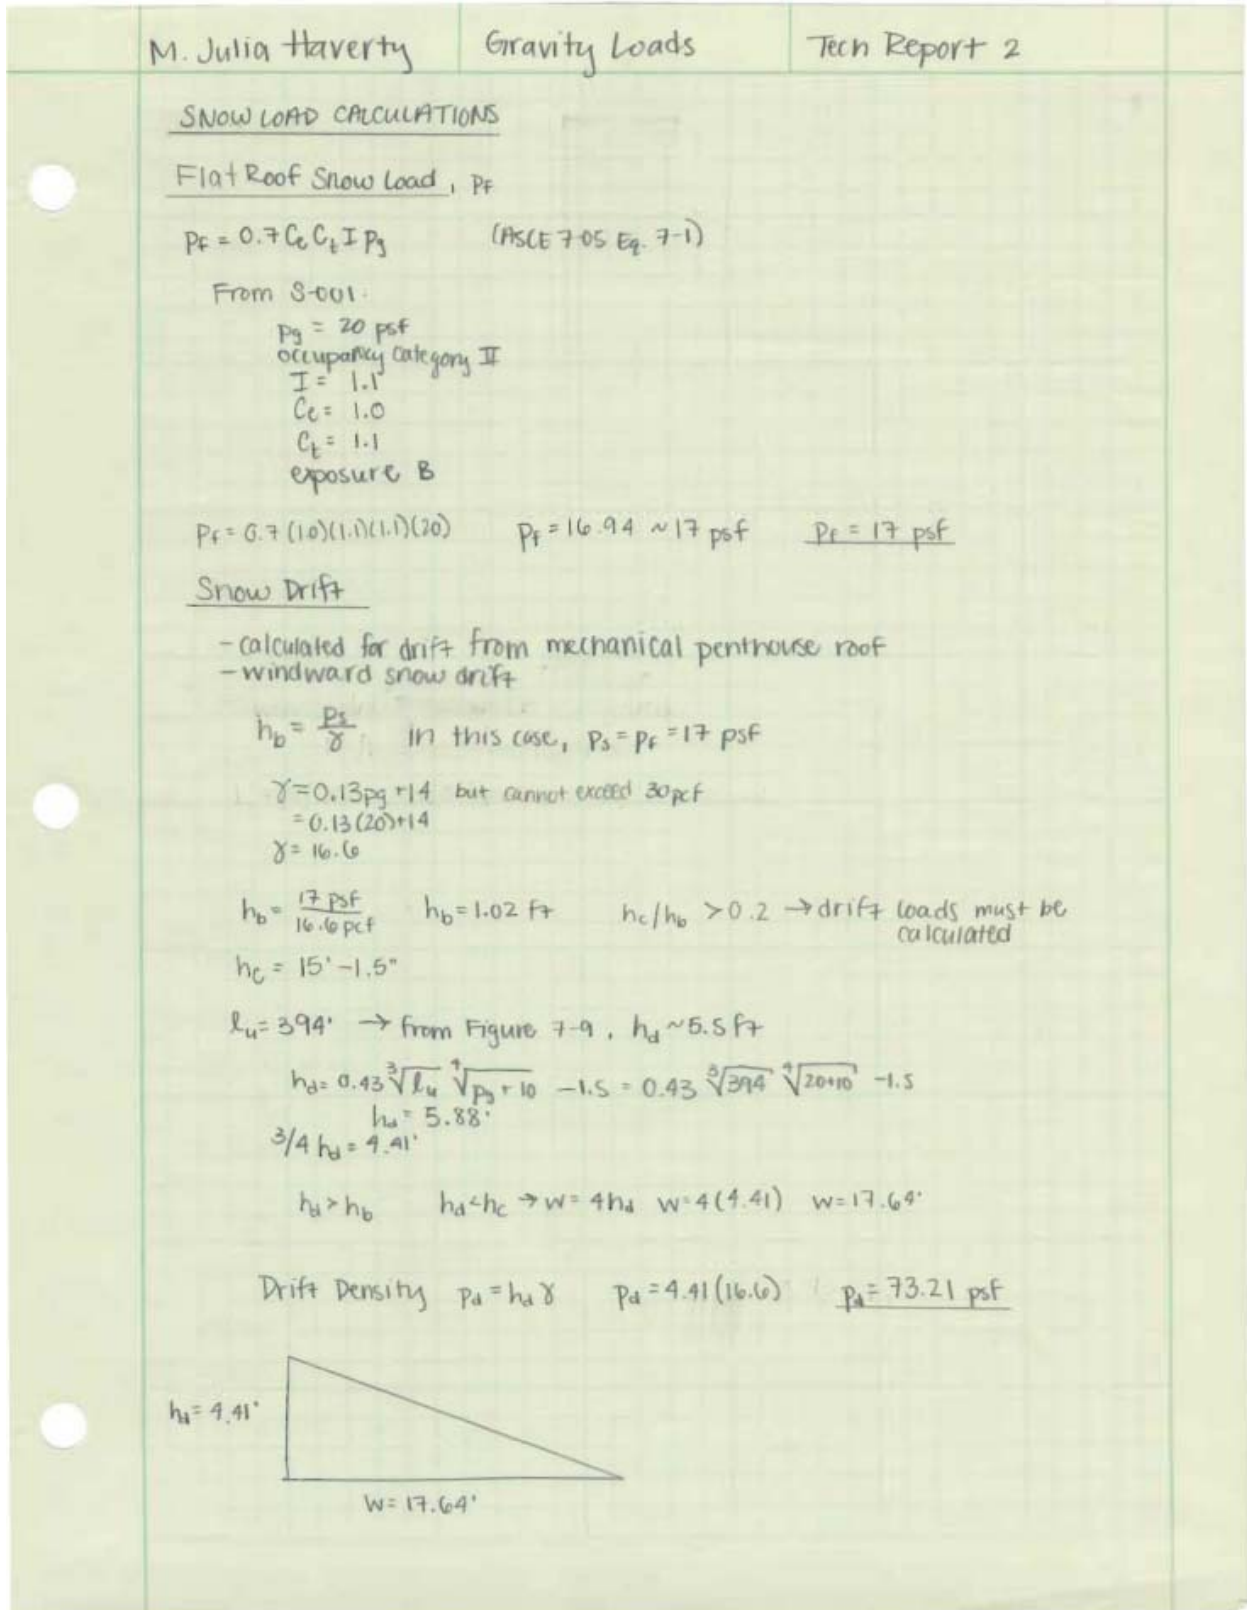 M. Julia Haverty Gravity Loads Tech Report 2
SNOW LOAD CALCULATIONS
Flat Roof Snow Load, Pf
Pf = 0.7 Ce Ct I Pg (ASCE 7-05 Eq. 7-1)
From S-001.
Pg = 20 psf
occupancy category II
I = 1.1
Ce = 1.0
Ct = 1.1
exposure B
Pf = 0.7 (1.0)(1.1)(1.1)(20) Pf = 16.94 ~ 17 psf Pf = 17 psf
Snow Drift
- calculated for drift from mechanical penthouse roof
- windward snow drift
hb = Ps/γ in this case, Ps = Pf = 17 psf
γ = 0.13pg + 14 but cannot exceed 30 pcf
= 0.13(20)+14
γ = 16.6
hb = 17 psf/16.6 pcf hb = 1.02 ft hc/hb > 0.2 → drift loads must be
calculated
hc = 15' - 1.5"
lu = 394' → from Figure 7-9, hd ~ 5.5 ft
hd = 0.43 ∛lu ∜(pg + 10) - 1.5 = 0.43 ∛394 ∜(20+10) - 1.5
hd = 5.88'
3/4 hd = 4.41'
hd > hb hd < hc → w = 4hd w = 4(4.41) w = 17.64'
Drift Density Pd = hd γ Pd = 4.41(16.6) Pd = 73.21 psf
hd = 4.41'
W = 17.64'